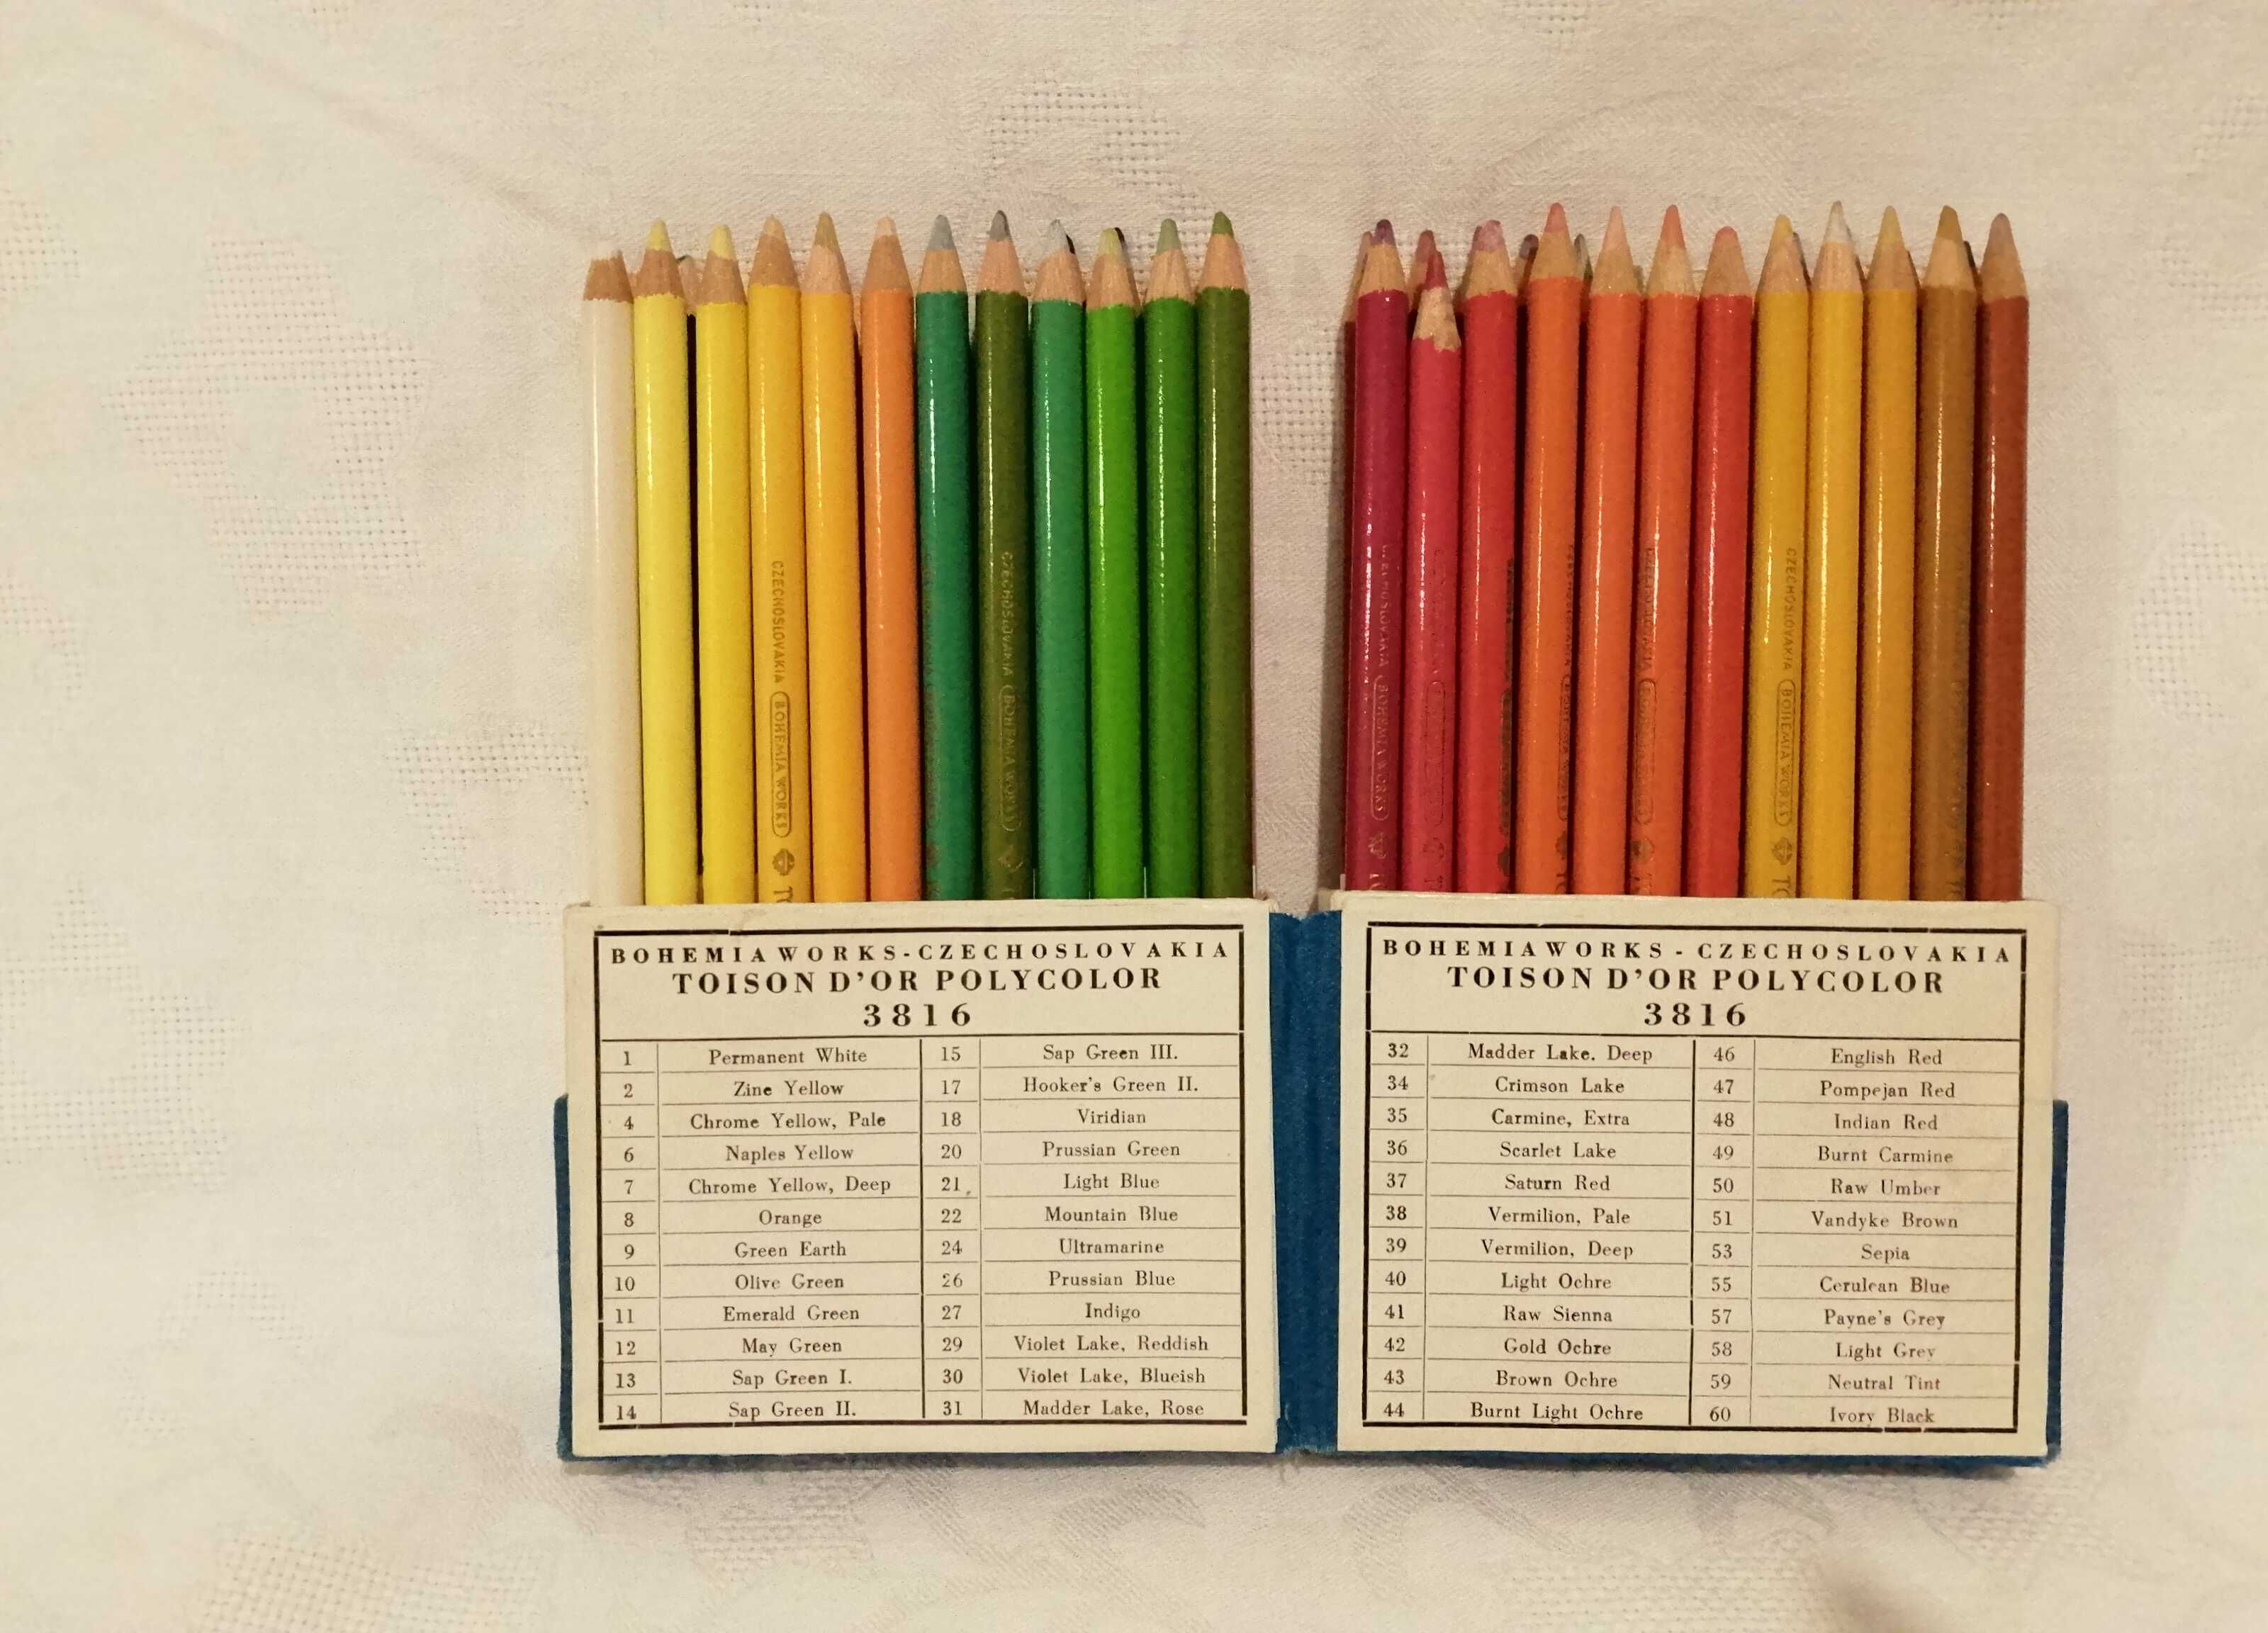 CZECHOSLOVAKIA BOHEMIA WORKS
CZECHOSLOVAKIA BOHEMIA WORKS
CZECHOSLOVAKIA BOHEMIA WORKS
CZECHOSLOVAKIA BOHEMIA WORKS
BOHEMIA WORKS-CZECHOSLOVAKIA
TOISON D'OR POLYCOLOR
3816
1 Permanent White 15 Sap Green III.
2 Zine Yellow 17 Hooker's Green II.
4 Chrome Yellow, Pale 18 Viridian
6 Naples Yellow 20 Prussian Green
7 Chrome Yellow, Deep 21 Light Blue
8 Orange 22 Mountain Blue
9 Green Earth 24 Ultramarine
10 Olive Green 26 Prussian Blue
11 Emerald Green 27 Indigo
12 May Green 29 Violet Lake, Reddish
13 Sap Green I. 30 Violet Lake, Blueish
14 Sap Green II. 31 Madder Lake, Rose
BOHEMIA WORKS - CZECHOSLOVAKIA
TOISON D'OR POLYCOLOR
3816
32 Madder Lake. Deep 46 English Red
34 Crimson Lake 47 Pompejan Red
35 Carmine, Extra 48 Indian Red
36 Scarlet Lake 49 Burnt Carmine
37 Saturn Red 50 Raw Umber
38 Vermilion, Pale 51 Vandyke Brown
39 Vermilion, Deep 53 Sepia
40 Light Ochre 55 Cerulean Blue
41 Raw Sienna 57 Payne's Grey
42 Gold Ochre 58 Light Grey
43 Brown Ochre 59 Neutral Tint
44 Burnt Light Ochre 60 Ivory Black